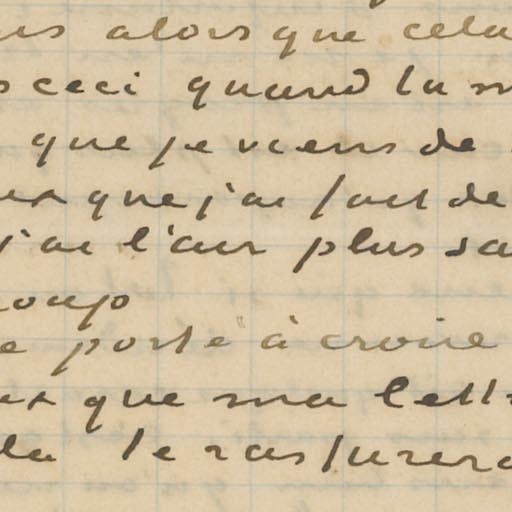 alors que cela
ceci quand la
que je viens de
que j'ai fait de
j'ai l'air plus sa
coup
porte à croire
que ma lett
la te rassurera